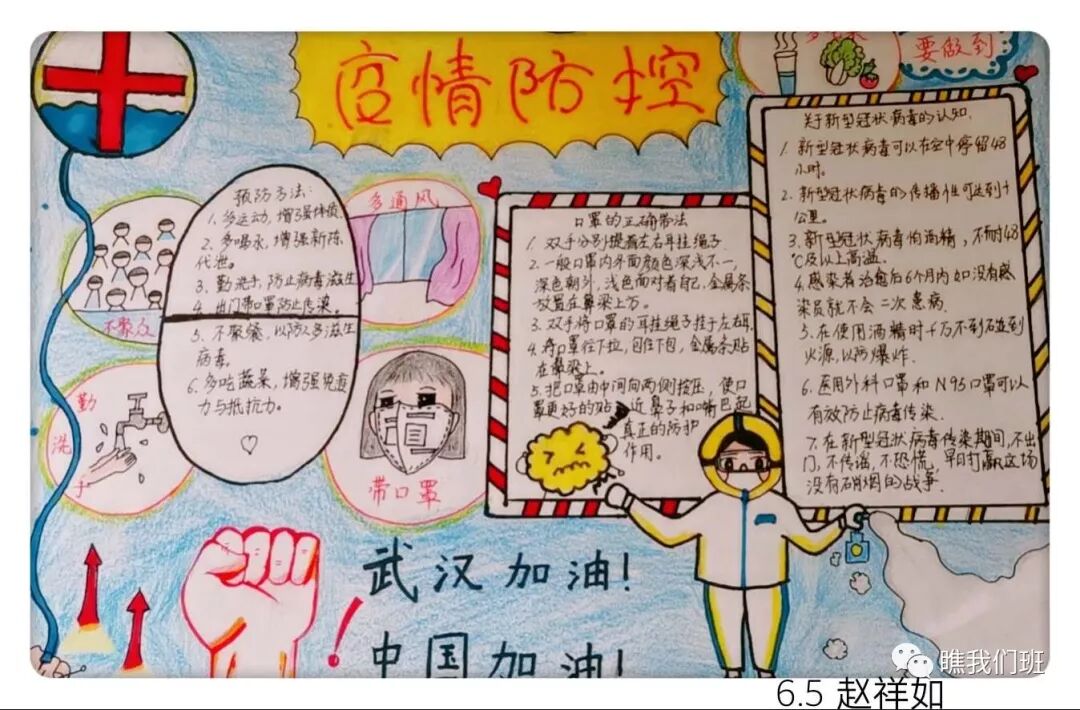 疫情防控
要做到
预防方法:
1. 多运动,增强体质.
2. 多喝水,增强新陈
代泄。
3. 勤洗手,防止病毒滋生
4. 出门带口罩防止传染。
5. 不聚餐,以防多滋生
病毒.
6. 多吃蔬菜,增强免疫
力与抵抗力。
多通风
不聚众
勤
洗
手
带口罩
口罩的正确带法
1. 双手分别提着左右耳挂绳子.
2. 一般口罩内外面颜色深浅不一,
深色朝外,浅色面对着自己,金属条
放置在鼻梁上方.
3. 双手将口罩的耳挂绳子挂于左右耳.
4. 将口罩往下拉,包住下包,金属条贴
在鼻梁上。
5. 把口罩由中间向两侧按压,使口
罩更好的贴近鼻子和嘴巴起
真正的防护
作用。
关于新型冠状病毒的认知.
1. 新型冠状病毒可以在空中停留48
小时。
2. 新型冠状病毒的传播性可达到十
公里。
3. 新型冠状病毒怕酒精,不耐48
℃及以上高温.
4. 感染者治愈后6个月内如没有感
染员就不会二次患病.
5. 在使用酒精时千万不到碰到
火源,以防爆炸.
6. 医用外科口罩和N95口罩可以
有效防止病毒传染.
7. 在新型冠状病毒传染期间,不出
门,不传谣,不恐慌,早日打赢这场
没有硝烟的战争.
武汉加油!
中国加油!
瞧我们班
6.5 赵祥如